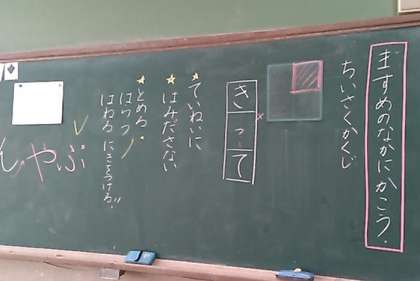 ますめのなかにかこう。
ちいさくかくじ
きって
ていねいに
はみださない
とめる・
はらう
はねる にきをつける。
ん・やぶ